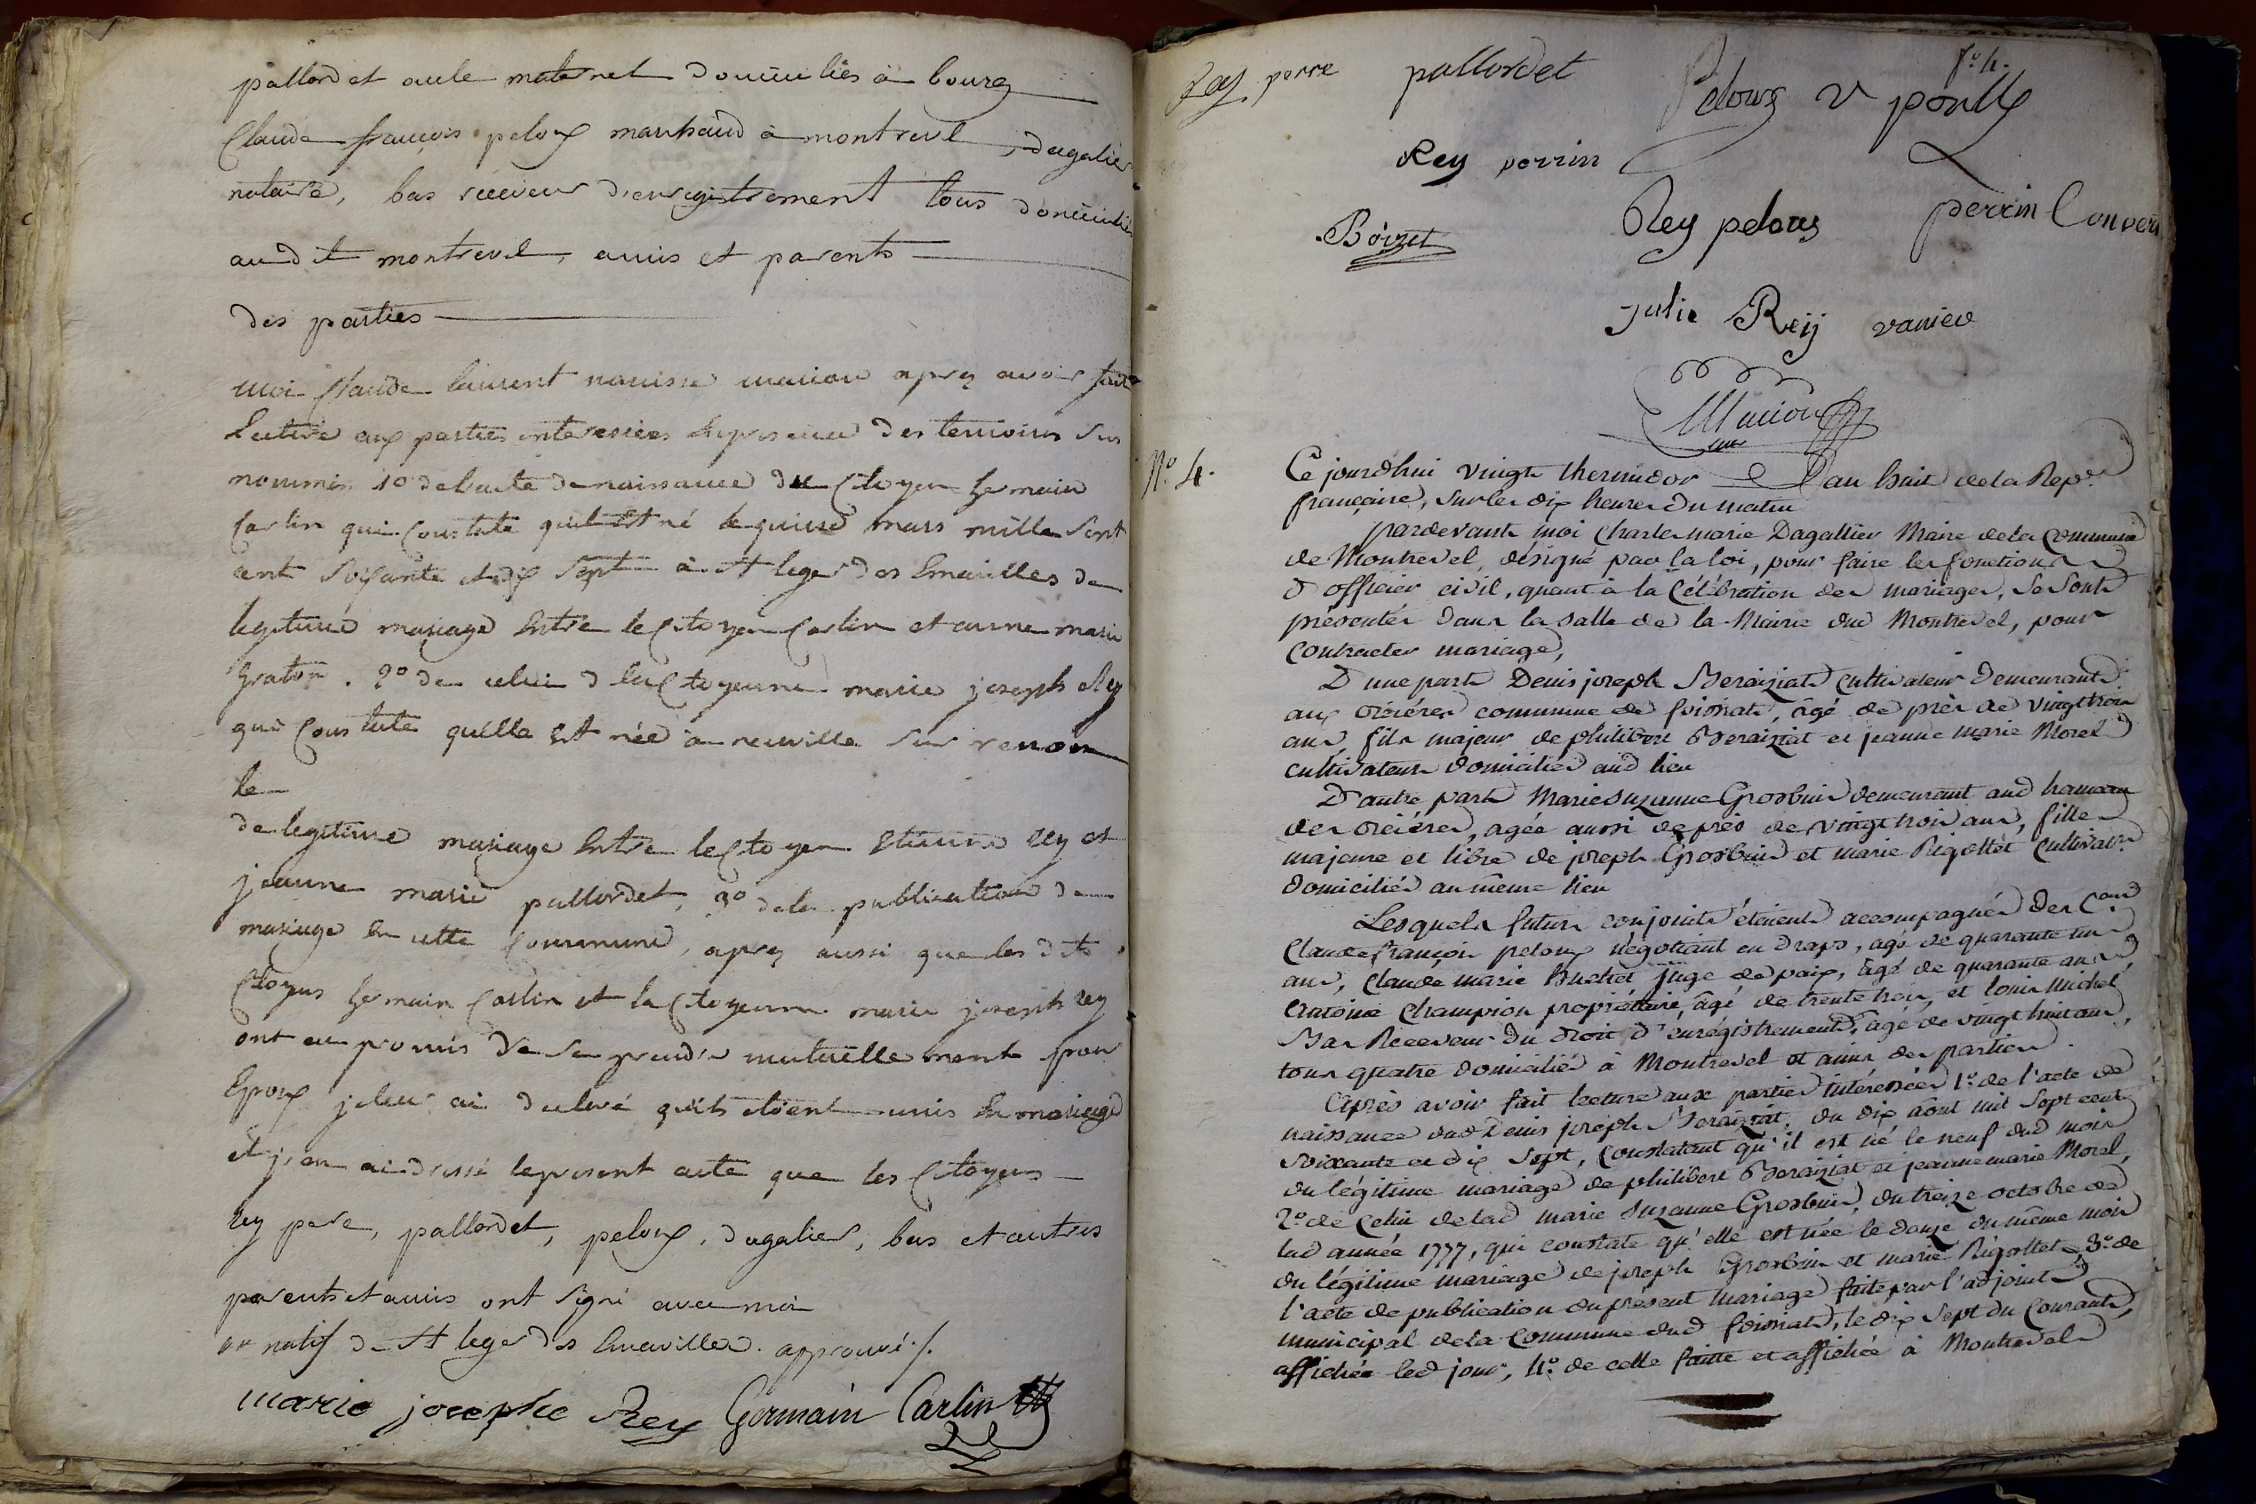 pallordet oncle maternel domiciliés à bourg
Claude françois peloux marchand à montrevel, dagalier
notaire, bas receveur d'enregistrement tous domiciliés
audit montrevel, amis et parents
des parties
moi Claude laurent marion après avoir fait
lecture aux parties interessées en presence des temoins sus
nommés 1o de l'acte de naissance du Citoyen Germain
Carlin qui constate qu'il est né le quinze mars mille sept
cent soixante et dix sept à st leger des
legitime mariage entre le Citoyen Carlin et anne marie
graton. 2o de celui de la Citoyenne marie joseph Rey
qui constate qu'elle est née à neuville sur renom
le
de legitime mariage entre le Citoyen etienne rey et
jeanne marie pallordet, 3o de la publication de
mariage en cette commune, après aussi que les dits
Citoyens germain Carlin et la Citoyenne marie joseph rey
ont eu promis de se prendre mutuellement pour
Epoux je leur ai declaré qu'ils etoient unis en mariage
et j'en ai dressé le present acte que les Citoyens
rey pere, pallordet, peloux, dagalier, bas et autres
parents et amis ont signé avec moi
natif de st leger des approuvé ./.
marie josephe Rey Germain Carlin
Rey perre pallordet Peloux
fo. 4.
Rey perrin
Boizet Rey peloux perrin Convers
Julie Reij
Marion
No. 4.
Ce jourdhui vingt thermidor an huit de la Repe.
française, sur les dix heures du matin
pardevant moi Charle marie Dagallier Maire de la Commune
de Montrevel, désigné par la loi, pour faire les fonctions
d'officier civil, quant à la Célébration des mariages, se sont
présentés dans la salle de la Mairie dud Montrevel, pour
contracter mariage,
D'une part Denis joseph Beraiziat cultivateur demeurant
aux commune de foissiat, agé de près de vingt trois
ans, fils majeur de philibert Beraiziat et jeanne marie Morel
cultivateurs domiciliés aud lieu
D'autre part Marie Suzanne Grosbuis demeurant aud hameau
des agée aussi de près de vingt trois ans, fille
majeure et libre de joseph Grosbuis et marie Rigottet cultivateurs
domiciliés au même lieu
Lesquels futurs conjoints étoient accompagnés des Cens
Claude françois peloux négotiant en draps, agé de quarante un
ans, Claude marie juge de paix, âgé de quarante ans
Antoine Champion propriétaire, âgé de trente trois, et louis michel
Bas Receveur du droit d'enrégistrement, âgé de vingt huit ans,
tous quatre domiciliés à Montrevel et amis des parties.
Après avoir fait lecture aux parties intéressées 1o. de l'acte de
naissance dud Denis joseph Beraiziat, du dix août mil sept cent
soixante et dix sept, constatant qu'il est né le neuf dud mois
du légitime mariage de philibert Beraiziat et jeanne marie Morel,
2o. de celui de lad marie Suzanne Grosbuis, du treize octobre de
lad année 1777, qui constate qu'elle est née le douze du même mois
du légitime mariage de joseph Grosbuis et marie Rigottet, 3o. de
l'acte de publication du présent mariage faite par l'adjoint
municipal de la commune dud foissiat, le dix sept du courant,
affichée led jour, 4o. de celle faitte et affichée à Montrevel